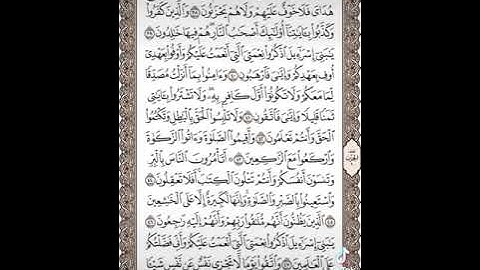 هُدَايَ فَلَا خَوْفٌ عَلَيْهِمْ وَلَا هُمْ يَحْزَنُونَ ٣٨ وَالَّذِينَ كَفَرُوا
وَكَذَّبُوا بِآيَاتِنَا أُولَٰئِكَ أَصْحَابُ النَّارِ هُمْ فِيهَا خَالِدُونَ ٣٩
يَٰبَنِي إِسْرَٰءِيلَ اذْكُرُوا نِعْمَتِيَ الَّتِي أَنْعَمْتُ عَلَيْكُمْ وَأَوْفُوا بِعَهْدِي
أُوفِ بِعَهْدِكُمْ وَإِيَّٰيَ فَارْهَبُونِ ٤٠ وَءَامِنُوا بِمَا أَنزَلْتُ مُصَدِّقًا
لِّمَا مَعَكُمْ وَلَا تَكُونُوا أَوَّلَ كَافِرٍ بِهِ وَلَا تَشْتَرُوا بِـَٔايَٰتِي
ثَمَنًا قَلِيلًا وَإِيَّٰيَ فَاتَّقُونِ ٤١ وَلَا تَلْبِسُوا الْحَقَّ بِالْبَٰطِلِ وَتَكْتُمُوا
الْحَقَّ وَأَنتُمْ تَعْلَمُونَ ٤٢ وَأَقِيمُوا الصَّلَوٰةَ وَءَاتُوا الزَّكَوٰةَ
وَارْكَعُوا مَعَ الرَّٰكِعِينَ ٤٣ أَتَأْمُرُونَ النَّاسَ بِالْبِرِّ
وَتَنسَوْنَ أَنفُسَكُمْ وَأَنتُمْ تَتْلُونَ الْكِتَٰبَ أَفَلَا تَعْقِلُونَ ٤٤
وَاسْتَعِينُوا بِالصَّبْرِ وَالصَّلَوٰةِ وَإِنَّهَا لَكَبِيرَةٌ إِلَّا عَلَى الْخَٰشِعِينَ
٤٥ الَّذِينَ يَظُنُّونَ أَنَّهُم مُّلَٰقُوا رَبِّهِمْ وَأَنَّهُمْ إِلَيْهِ رَٰجِعُونَ ٤٦
يَٰبَنِي إِسْرَٰءِيلَ اذْكُرُوا نِعْمَتِيَ الَّتِي أَنْعَمْتُ عَلَيْكُمْ وَأَنِّي فَضَّلْتُكُمْ
عَلَى الْعَٰلَمِينَ ٤٧ وَاتَّقُوا يَوْمًا لَّا تَجْزِي نَفْسٌ عَن نَّفْسٍ شَيْـًٔا